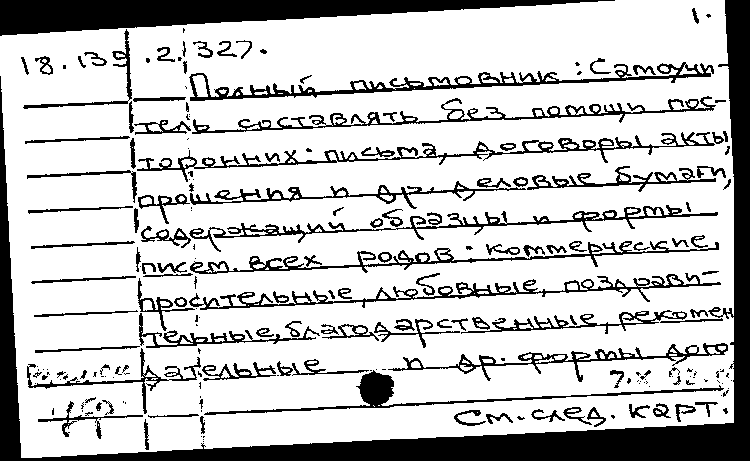 1.
18.139.2.327.
Полный письмовник: Самоучи-
тель составлять без помощи пос-
торонних: письма, договоры, акты,
прошения и др. деловые бумаги,
содержащий образцы и формы
писем. всех родов: коммерческие,
просительные, любовные, поздрави-
тельные, благодарственные, рекомен
дательные и др. формы дого-
7.X 92.
См. след. карт.